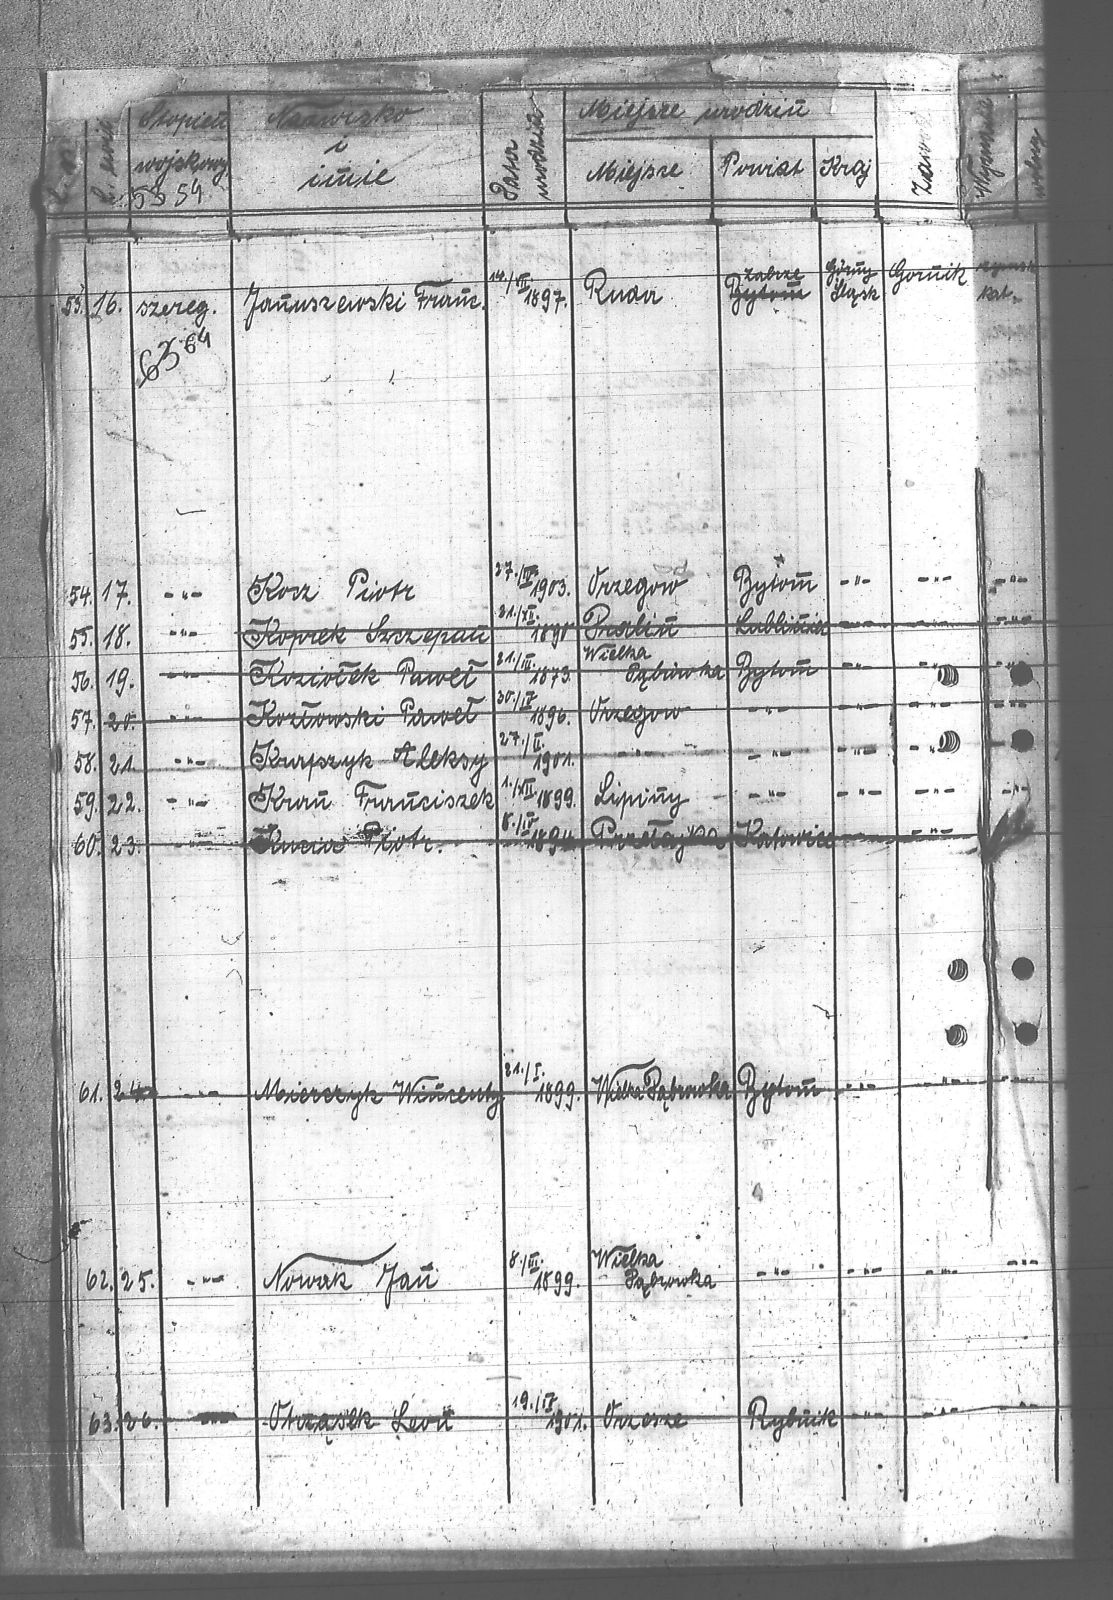 Stopień wojskowy Nazwisko i imie Data urodzin Miejsce urodzin
Miejsce Powiat Kraj
53 54
53. 16. szereg. Januszewski Franc. 1897. Ruda Zabrze Bytom Górny Śląsk Gornik kat.
63 64
54. 17. -"- Kocz Piotr 1903. Orzegow Bytom -"- -"- -"-
55. 18. -"- Koprek Szczepan 1890 Lubliniec -"- -"- -"-
56. 19. -"- Koziołek Paweł 21./III. 1873. Wielka Dąbrówka Bytom -"- -"-
57. 20. -"- Kozłowski Paweł 30./IV 1896. Orzegow -"- -"- -"- -"-
58. 21. -"- Krupczyk Aleksy 27./II. 1901. -"- -"- -"- -"-
59. 22. -"- Krau Franciszek 1./VII 1899. Lipiny -"- -"- -"- -"-
60. 23. -"- Kucia Piotr. 1894. Przełajka Katowice -"-
61. 24 -"- Mierczyk Wincenty 21./I. 1899. Wielka Dąbrowka Bytom -"- -"- -"-
62. 25. -"- Nowak Jan 8./III. 1899. Wielka Dąbrowka -"- -"- -"- -"-
63. 26. -"- Otrząsek Leon 19./IV 1901. Orzesze Rybnik -"- -"- -"-